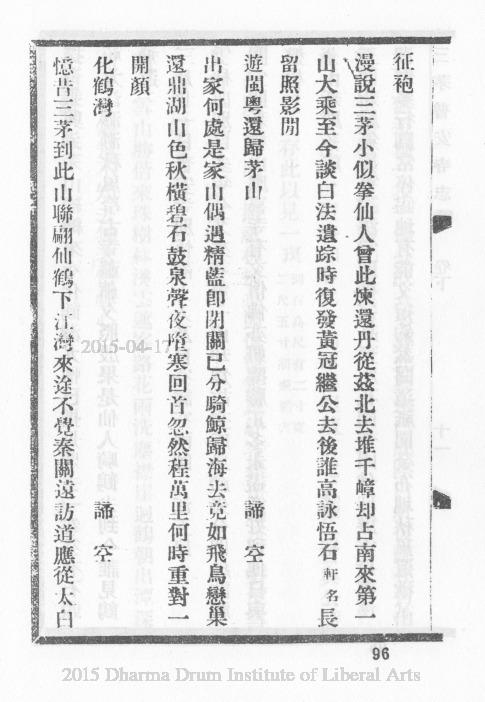 征袍
漫說三茅小似拳仙人曾此煉還丹從茲北去堆千嶂却占南來第一
山大乘至今談白法遺踪時復發黃冠繼公去後誰高詠悟石軒名長
留照影閒
遊閩粵還歸茅山 諦空
出家何處是家山偶遇精藍卽閉關已分騎鯨歸海去竟如飛鳥戀巢
還鼎湖山色秋橫碧石鼓泉聲夜墮寒回首忽然程萬里何時重對一
開顏
化鶴灣 諦空
憶昔三茅到此山聯翩仙鶴下江灣來途不覺秦關遠訪道應從太白
96
2015-04-17
2015 Dharma Drum Institute of Liberal Arts